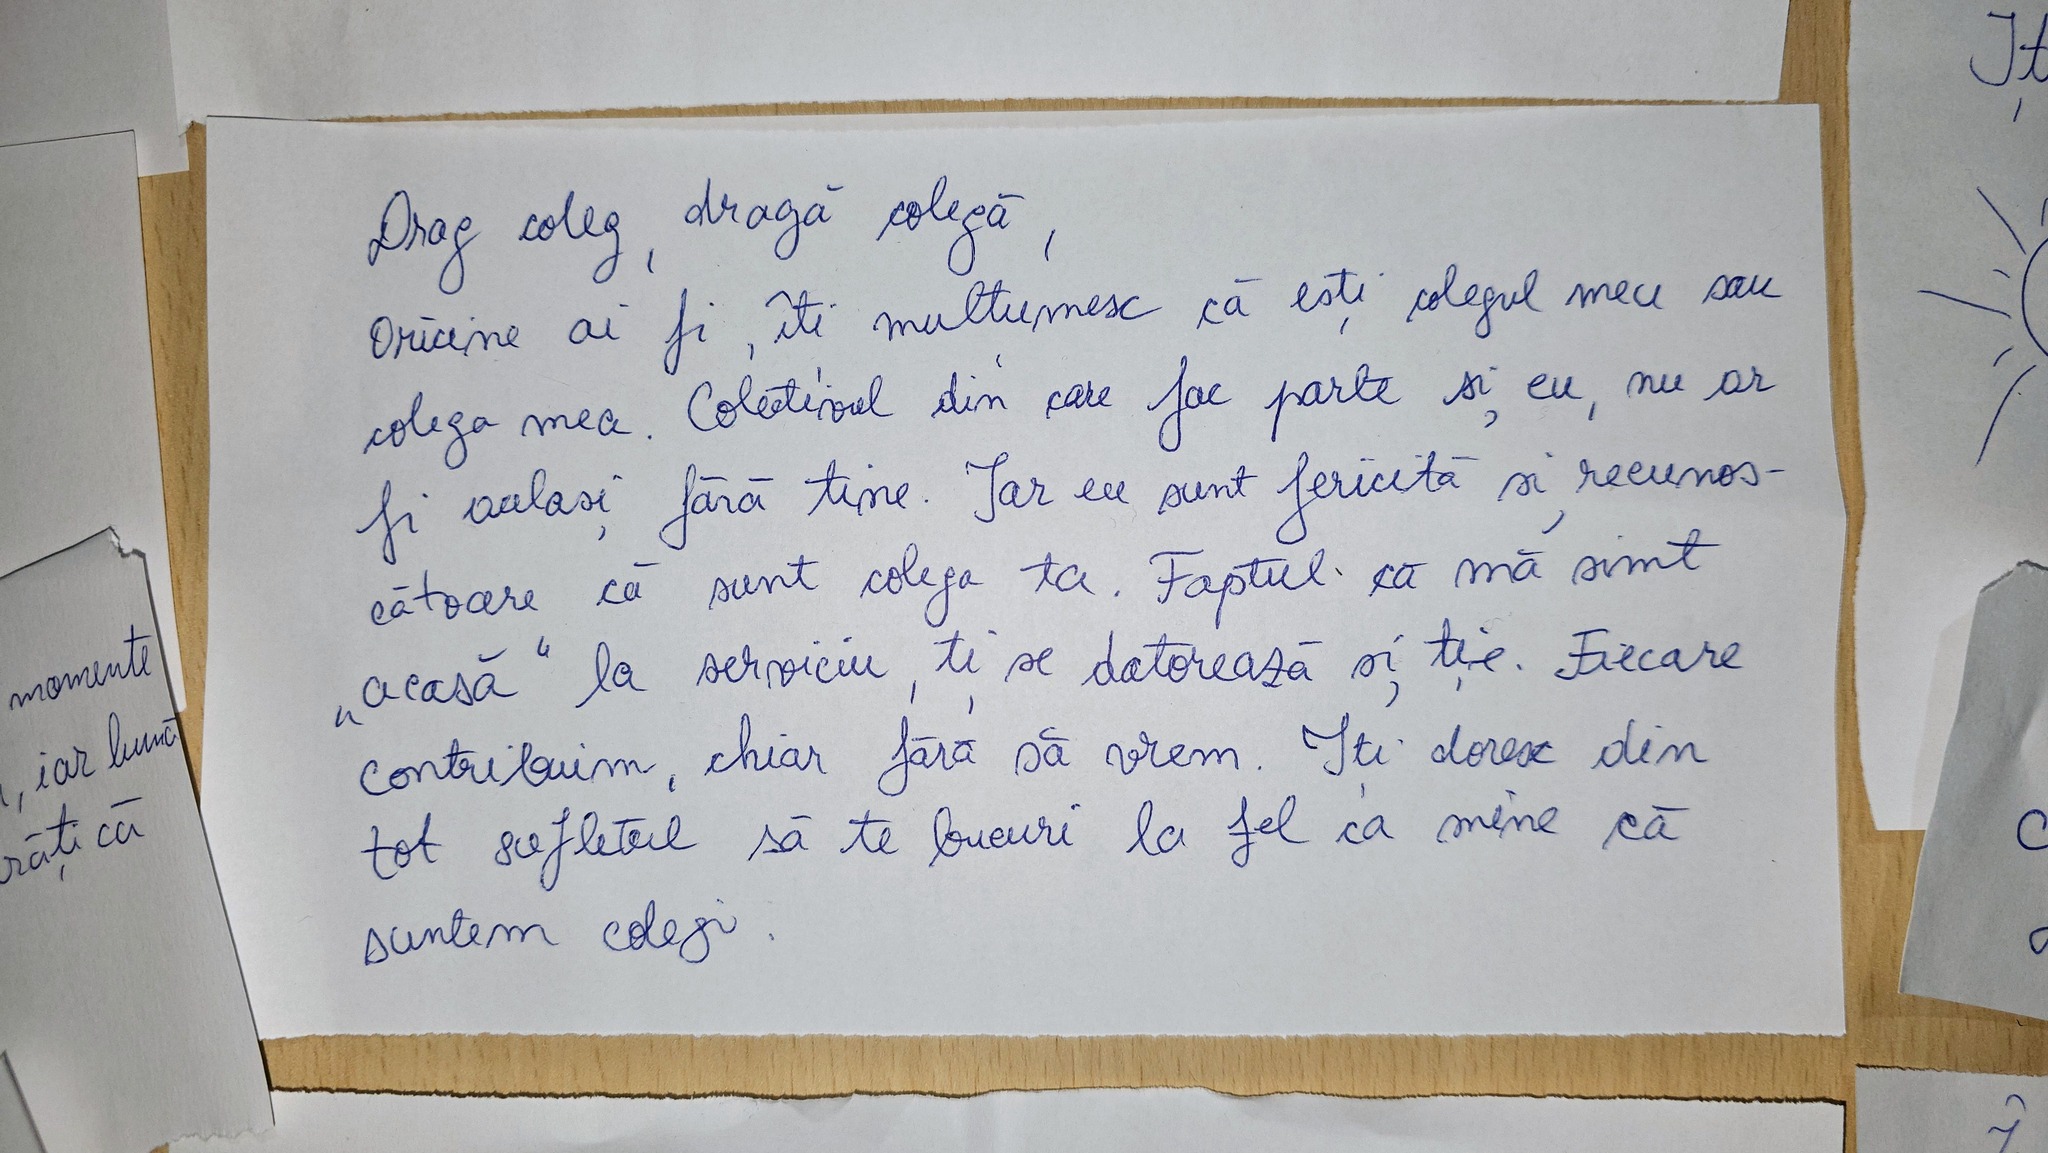 Drag coleg, dragă colegă,
Oricine ai fi, îți mulțumesc că ești colegul meu sau
colega mea. Colectivul din care fac parte și eu, nu ar
fi același fără tine. Iar eu sunt fericită și recunos-
cătoare că sunt colega ta. Faptul că mă simt
„acasă“ la serviciu, ți se datorează și ție. Fiecare
contribuim, chiar fără să vrem. Iți doresc din
tot sufletul să te bucuri la fel ca mine că
suntem colegi.
momente
, iar bună
răți că
Iț